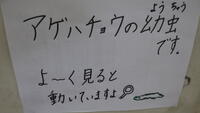 ようちゅう
アゲハチョウの幼虫
です。
よ～く見ると
動いていますよ